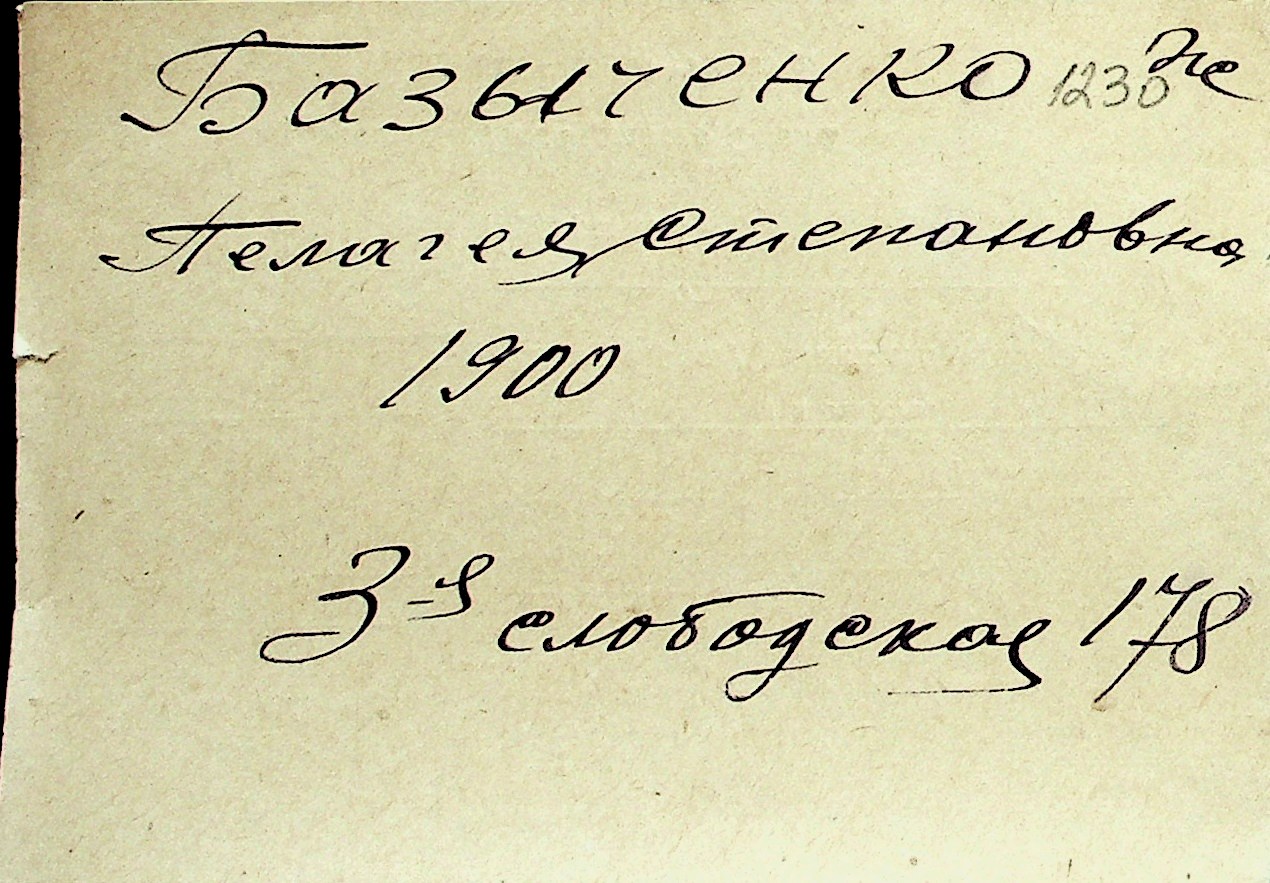 Базыченко 1230 же
Пелагея Степановна
1900
3-я слободская 178